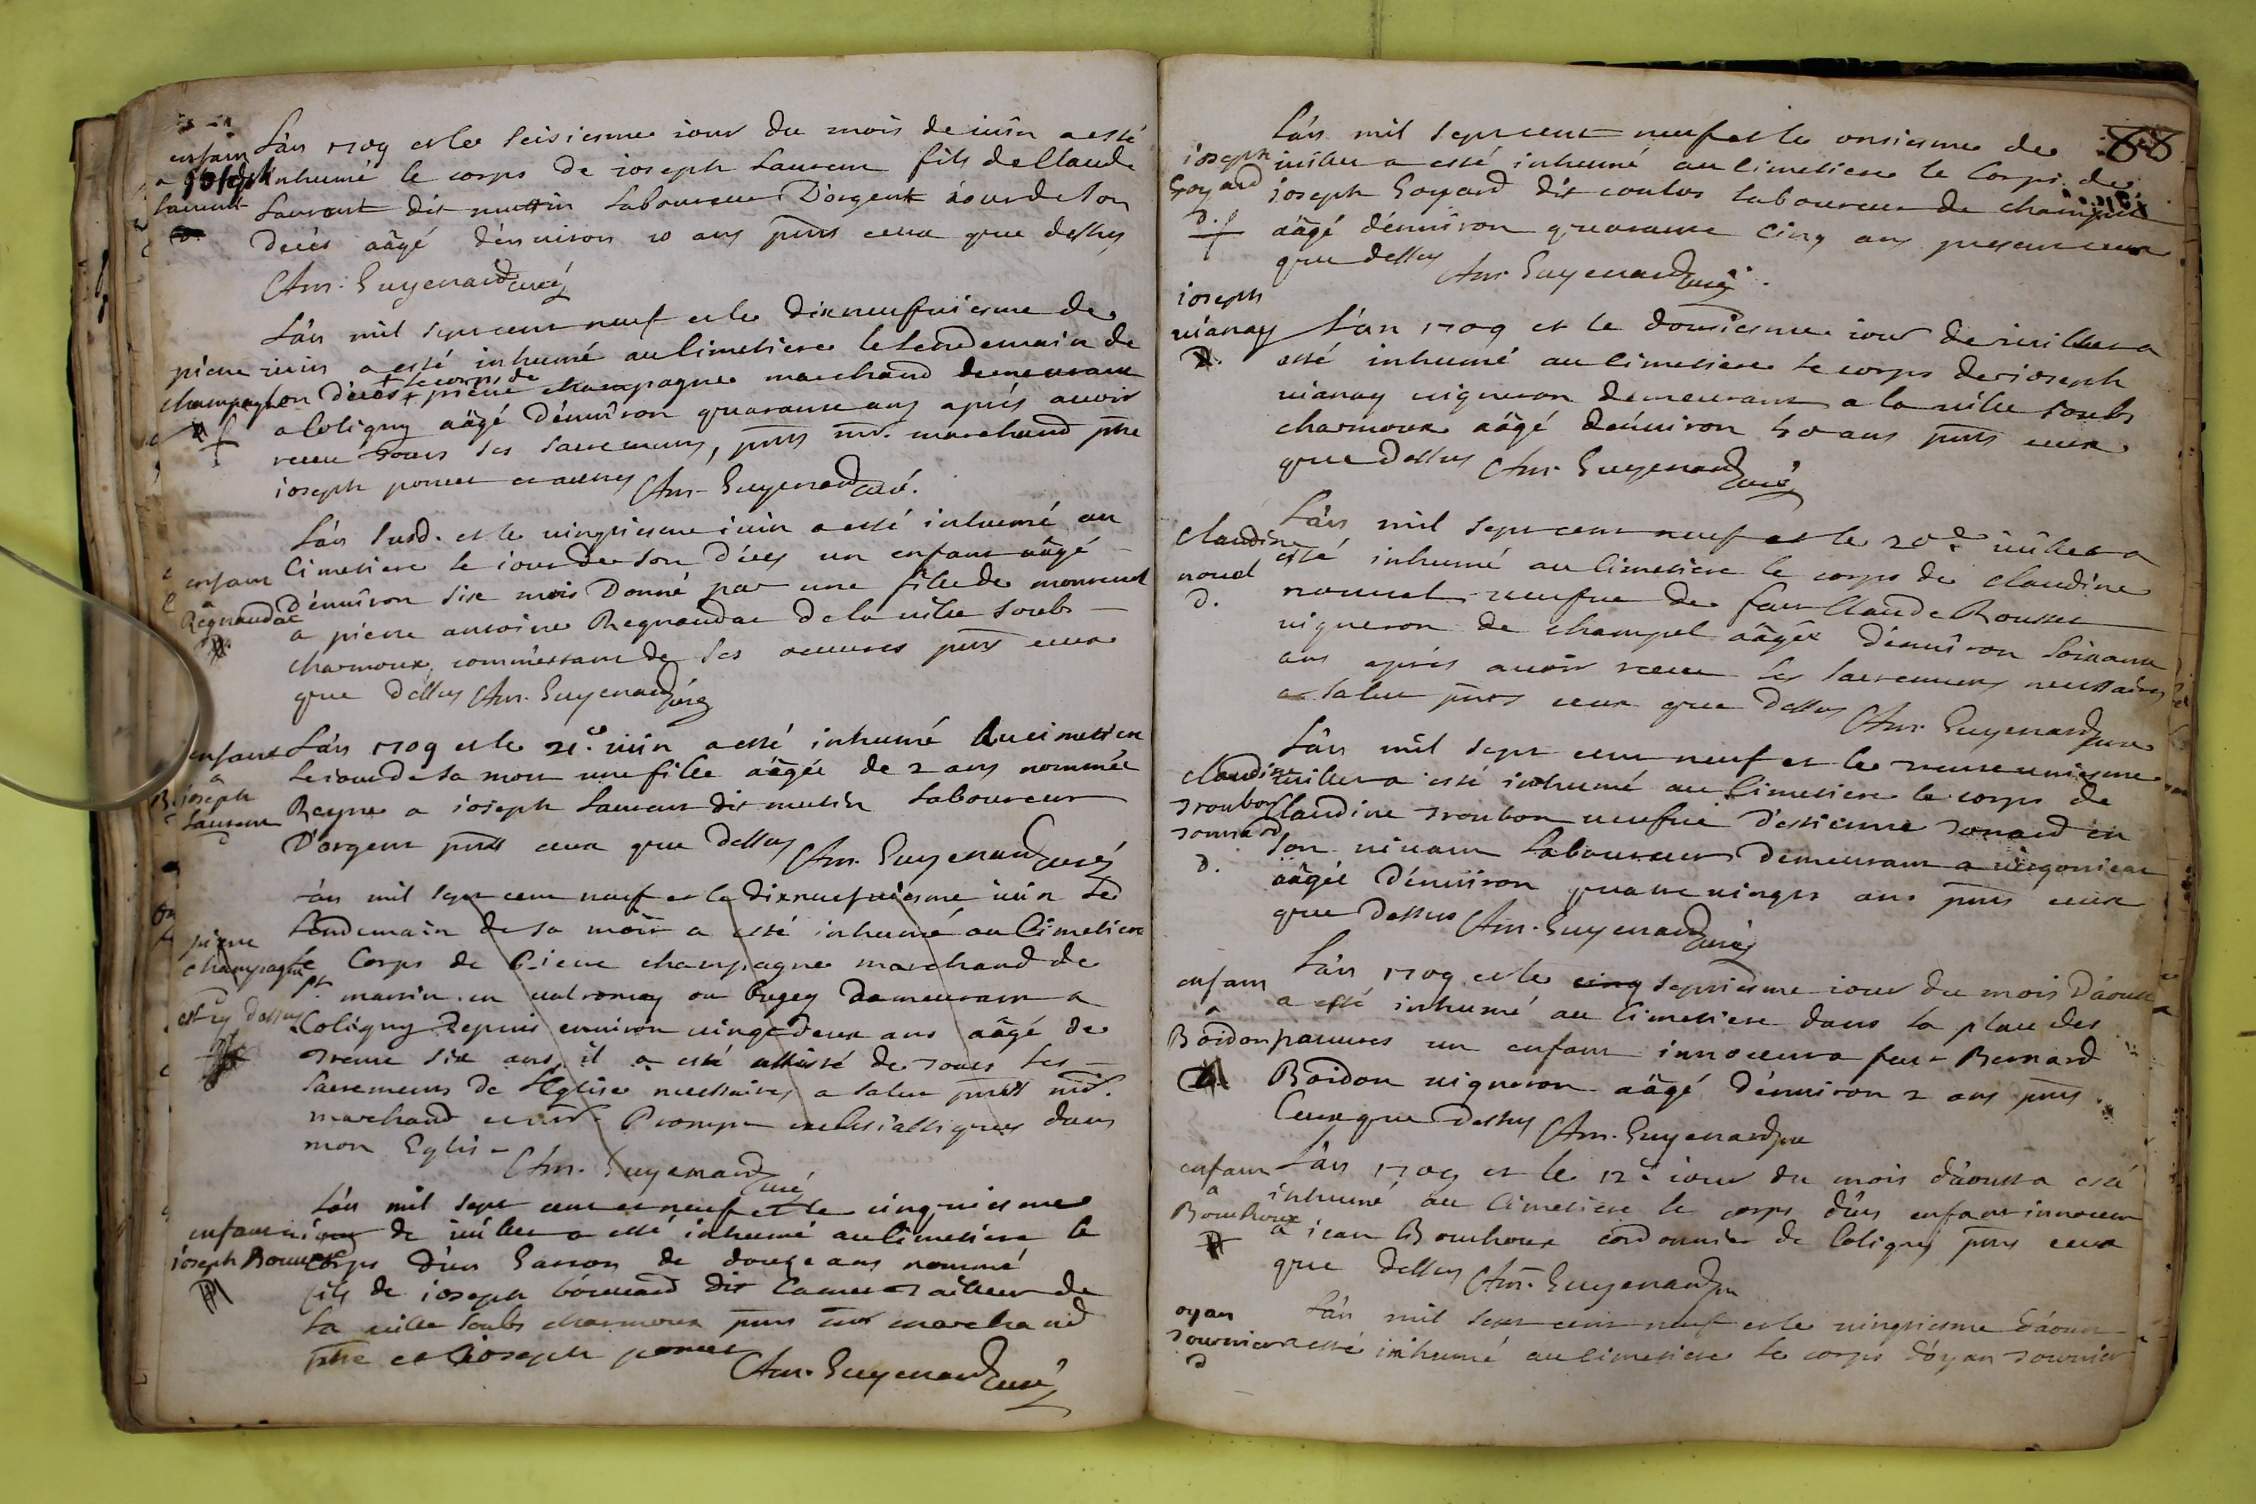 enfan
a joseph
Laurent
L'an 1709 et le seisiesme iour du mois de iuin a esté
inhumé le corps de ioseph Laurent fils de Claude
Laurent dit muttin Laboureur D'orgent iour de son
decés aâgé d'enuiron 10 ans pnts ceux que dessus
Am: Guyenard curé
pierre
champagne
L'an mil sept cent neuf et le dixneufuiesme de
iuin a esté inhumé au Cimetiere le Lendemain de
son décés + le corps de + pierre champagne marchand demeurant
a Coligny aâgé d'enuiron quarante ans aprés auoir
receu tous les sacremens, pnts mr. marchand ptre
ioseph poncet et autres Am. Guyenard curé.
enfant
a
Regnaudat
L'an susd. et le vingtiesme iuin a esté inhumé au
Cimetiere le iour de son décés un enfant aâgé
d'enuiron six mois Donné par une fille de
a pierre antoine Regnaudat de la uille soubs
charmoux, commettant de ses oeuures pnts ceux
que dessus Am. Guyenard curé
enfant
a
ioseph
Laurent
L'an 1709 et le 21.e iuin a esté inhumé Au cimetiere
le iour de sa mort une fille aâgée de 2 ans nommée
Reyne a ioseph Laurent dit mutin Laboureur
D'orgent pnts ceux que dessus Am. Guyenard curé
pierre
champagne
est cy dessus
L'an mil sept cent neuf et le dixneufuiesme iuin le
Lendemain de sa mort a esté inhumé au Cimetiere
le Corps de Pierre champagne marchand de
St martin en ualromey ou bugey demeurant a
Coligny depuis enuiron vingt deux ans aâgé de
trente six ans, il a esté assisté de tous les
sacremens de l'Eglise necessaires a salut pnts mr.
marchand et mr. Prompt ecclesiastiques dans
mon Eglise
Am. Guyenard curé
enfant
ioseph Bouuard
L'an mil sept cent et neuf et le cinquiesme
iour de iuillet a esté inhumé au Cimetiere le
corps d'un Garcon de douze ans nommé
fils de ioseph bouuard dit Camus tailleur de
La uille soubs charmoux pnts mr marchand
ptre et ioseph poncet Am. Guyenard curé
88
ioseph
Goyard
d.
L'an mil sept cent neuf et le onsiesme de
iuillet a esté inhumé au Cimetiere le Corps de
ioseph Goyard dit coulus laboureur de champel
aâgé d'enuiron quarante Cinq ans present ceux
que dessus Am. Guyenard curé.
ioseph
uianay
L'an 1709 et le dousiesme iour de iuillet a
esté inhumé au Cimetiere le corps de ioseph
uianay uigneron demeurant a la uille soubs
charmoux aâgé d'enuiron 40 ans pnts ceux
que dessus Am. Guyenard curé
claudine
nouel
d.
L'an mil sept cent neuf et le 20e iuillet a
esté inhumé au Cimetiere le corps de claudine
nouuel ueufue de feu Claude Rousset
uigneron de champel aâgée d'enuiron soixante
ans aprés auoir receu les sacremens necessaires
a salut pnts ceux que dessus Am. Guyenard curé
claudine
troubon
tonnard
d.
L'an mil sept cent neuf et le uiesme
iuillet a esté inhumé au Cimetiere le corps de
Claudine troubon ueufue d'estienne tonard en
son uiuant Laboureur demeurant a
aâgée d'enuiron quatre uingts ans pnts ceux
que dessus Am. Guyenard curé
enfant
a
Boidon
L'an 1709 et le cinq septiesme iour du mois d'aoust
a esté inhumé au Cimetiere dans la place des
pauures un enfant innocent a feu Bernard
Boidon uigneron aâgé d'enuiron 2 ans pnts
Ceux que dessus Am. Guyenard cure
enfant
a
Bouchoux
L'an 1709 et le 12e iour du mois d'aoust a esté
inhumé au Cimetiere le corps d'un enfant innocent
a iean Bouchoux cordonnier de Coligny pnts ceux
que dessus Am. Guyenard cure
oyan
tournier
d
L'an mil sept cent neuf et le uingtiesme d'aoust
a esté inhumé au Cimetiere le corps d'oyan tournier